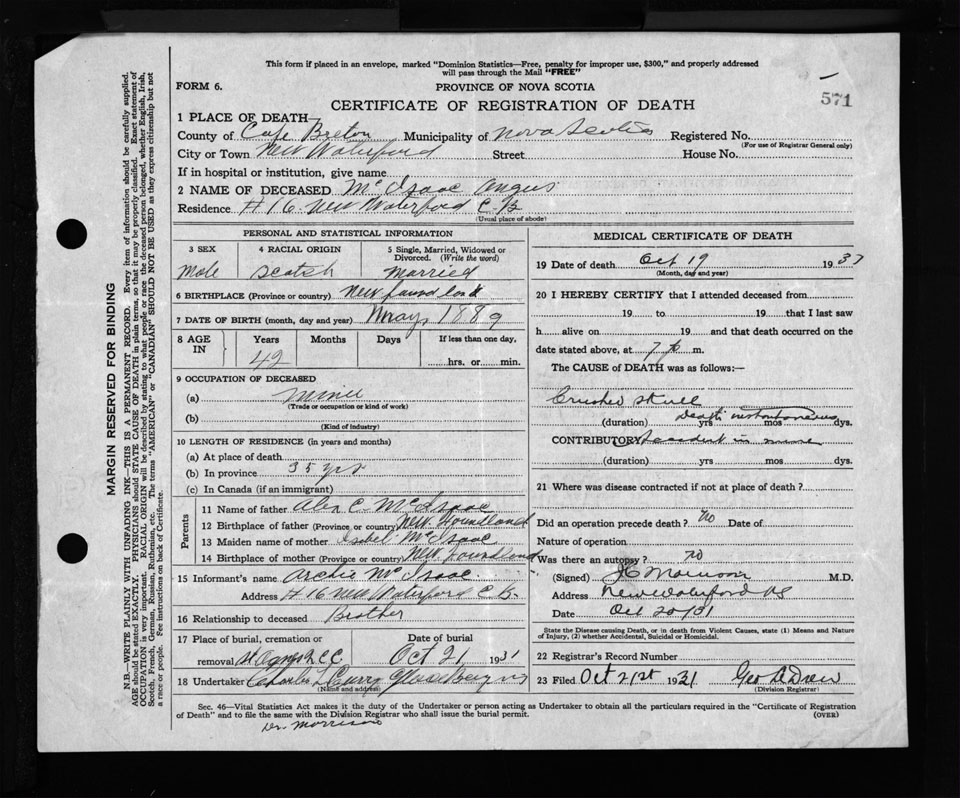 This form if placed in an envelope, marked "Dominion Statistics—Free, penalty for improper use, $300," and properly addressed
will pass through the Mail "FREE"
571
FORM 6.
PROVINCE OF NOVA SCOTIA
CERTIFICATE OF REGISTRATION OF DEATH
1 PLACE OF DEATH—
County of Cape Breton Municipality of Nova Scotia Registered No.
(For use of Registrar General only)
City or Town New Waterford Street House No.
If in hospital or institution, give name
2 NAME OF DECEASED McIsaac Angus
Residence #16 New Waterford C B
(Usual place of abode)
PERSONAL AND STATISTICAL INFORMATION
3 SEX 4 RACIAL ORIGIN 5 Single, Married, Widowed or Divorced. (Write the word)
Male Scotch Married
6 BIRTHPLACE (Province or country) Newfoundland
7 DATE OF BIRTH (month, day and year) May 1889
8 AGE IN Years Months Days If less than one day,
42 hrs. or min.
9 OCCUPATION OF DECEASED
(a) Miner
(Trade or occupation or kind of work)
(b)
(Kind of industry)
10 LENGTH OF RESIDENCE (in years and months)
(a) At place of death
(b) In province 35 yrs
(c) In Canada (if an immigrant)
Parents
11 Name of father Alex C McIsaac
12 Birthplace of father (Province or country) New Foundland
13 Maiden name of mother Isabel McIsaac
14 Birthplace of mother (Province or country) New Foundland
15 Informant's name Archie McIsaac
Address #16 New Waterford C B.
16 Relationship to deceased Brother
17 Place of burial, cremation or removal Date of burial
Oct 21 1931
18 Undertaker Charles Curry Glace Bay NS
(Name and address)
MEDICAL CERTIFICATE OF DEATH
19 Date of death Oct 19 1937
(Month, day and year)
20 I HEREBY CERTIFY that I attended deceased from
19 to 19 that I last saw
h alive on 19 and that death occurred on
date stated above, at 7 p m.
The CAUSE of DEATH was as follows:—
Crushed Skull
Death instantaneous
(duration) yrs mos dys.
CONTRIBUTORY Accident in mine
(duration) yrs mos dys.
21 Where was disease contracted if not at place of death?
Did an operation precede death? No Date of
Nature of operation
Was there an autopsy? no
(Signed) J C Morrison M.D.
Address New Waterford NS
Date Oct 20/31
State the Disease causing Death, or in death from Violent Causes, state (1) Means and Nature
of Injury, (2) whether Accidental, Suicidal or Homicidal.
22 Registrar's Record Number
23 Filed Oct 21st 1931 Geo
(Division Registrar)
Sec. 46—Vital Statistics Act makes it the duty of the Undertaker or person acting as Undertaker to obtain all the particulars required in the "Certificate of Registration
of Death" and to file the same with the Division Registrar who shall issue the burial permit. (OVER)
Dr. Morrison
MARGIN RESERVED FOR BINDING
N.B.—WRITE PLAINLY WITH UNFADING INK—THIS IS A PERMANENT RECORD. Every item of information should be carefully supplied.
AGE should be stated EXACTLY. PHYSICIANS should STATE CAUSE OF DEATH in plain terms, so that it may be properly classified. Exact statement of
OCCUPATION is very important. RACIAL ORIGIN will be described by stating to what people or race the deceased person belonged, whether English, Irish,
Scotch, French, German, Russian, Ruthenian, etc. The terms "AMERICAN" or "CANADIAN" SHOULD NOT BE USED as they express citizenship but not
a race or people. See instructions on back of Certificate.